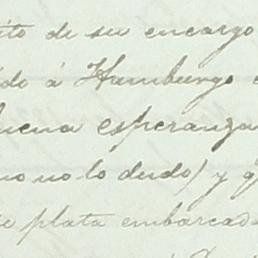 ito de su encargo
do á Hamburgo
uena esperanza
no no lo dudo) y q
e plata embarcada